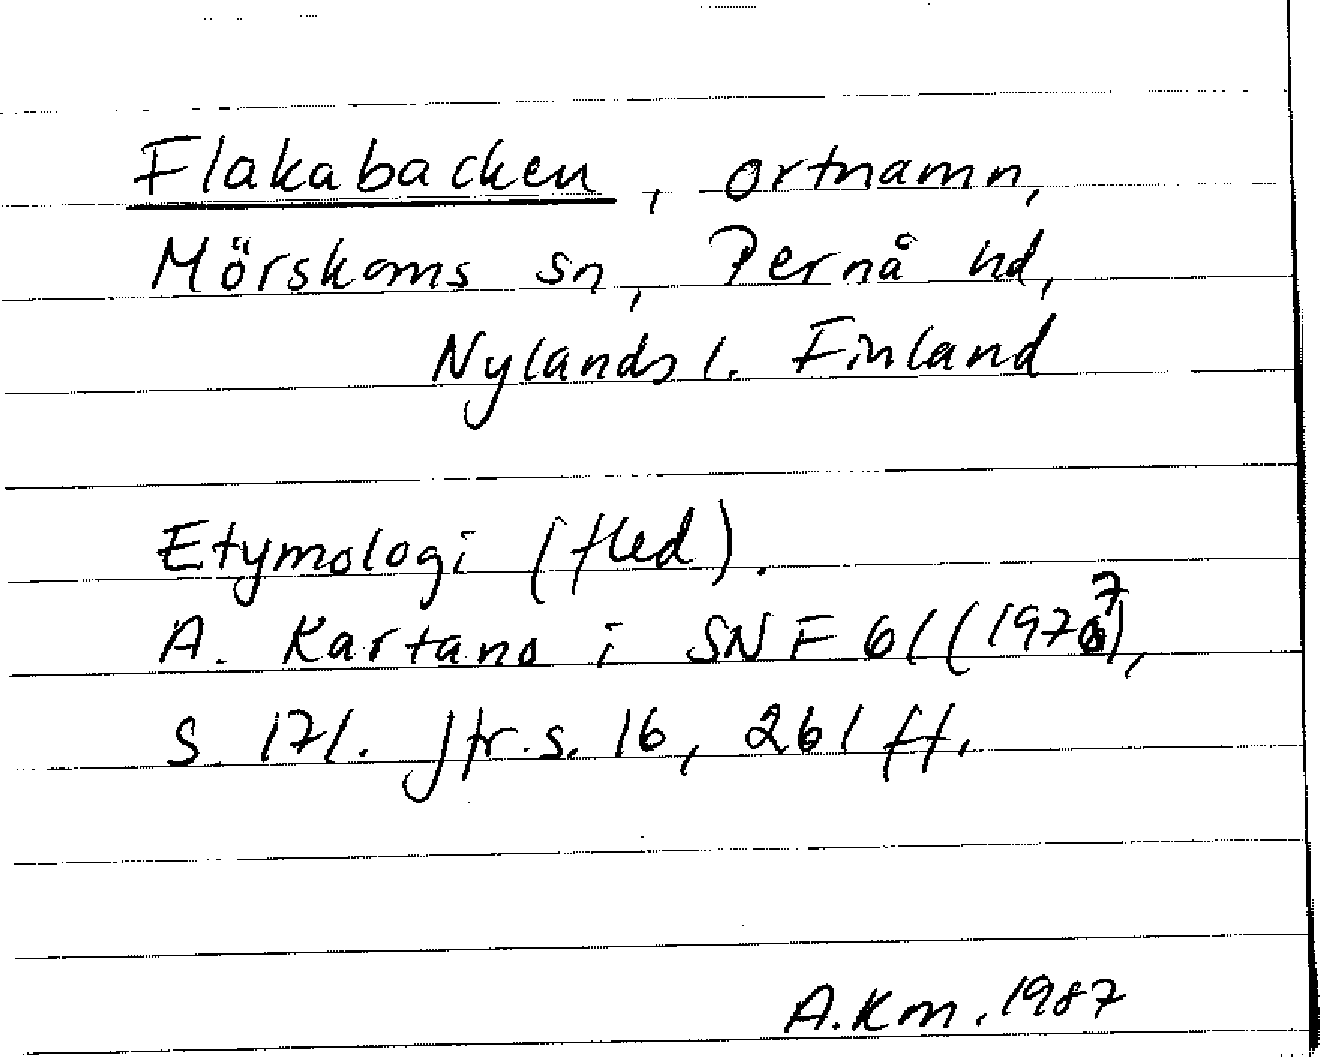 Flakabacken, ortnamn,
Mörskoms sn, Pernå hd,
Nylands l. Finland
Etymologi (fled).
A. Kartano i SNF 61 (1977),
S. 171. Jfr. s. 16, 261 ff.
A.Km. 1987